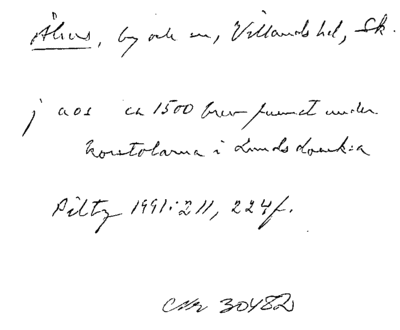 Åhus, by och sn, Villands hd, Sk.
j aos ca 1500 brev funnet under
korstolarna i Lunds domk:a
Piltz 1991:211, 224f.
30482